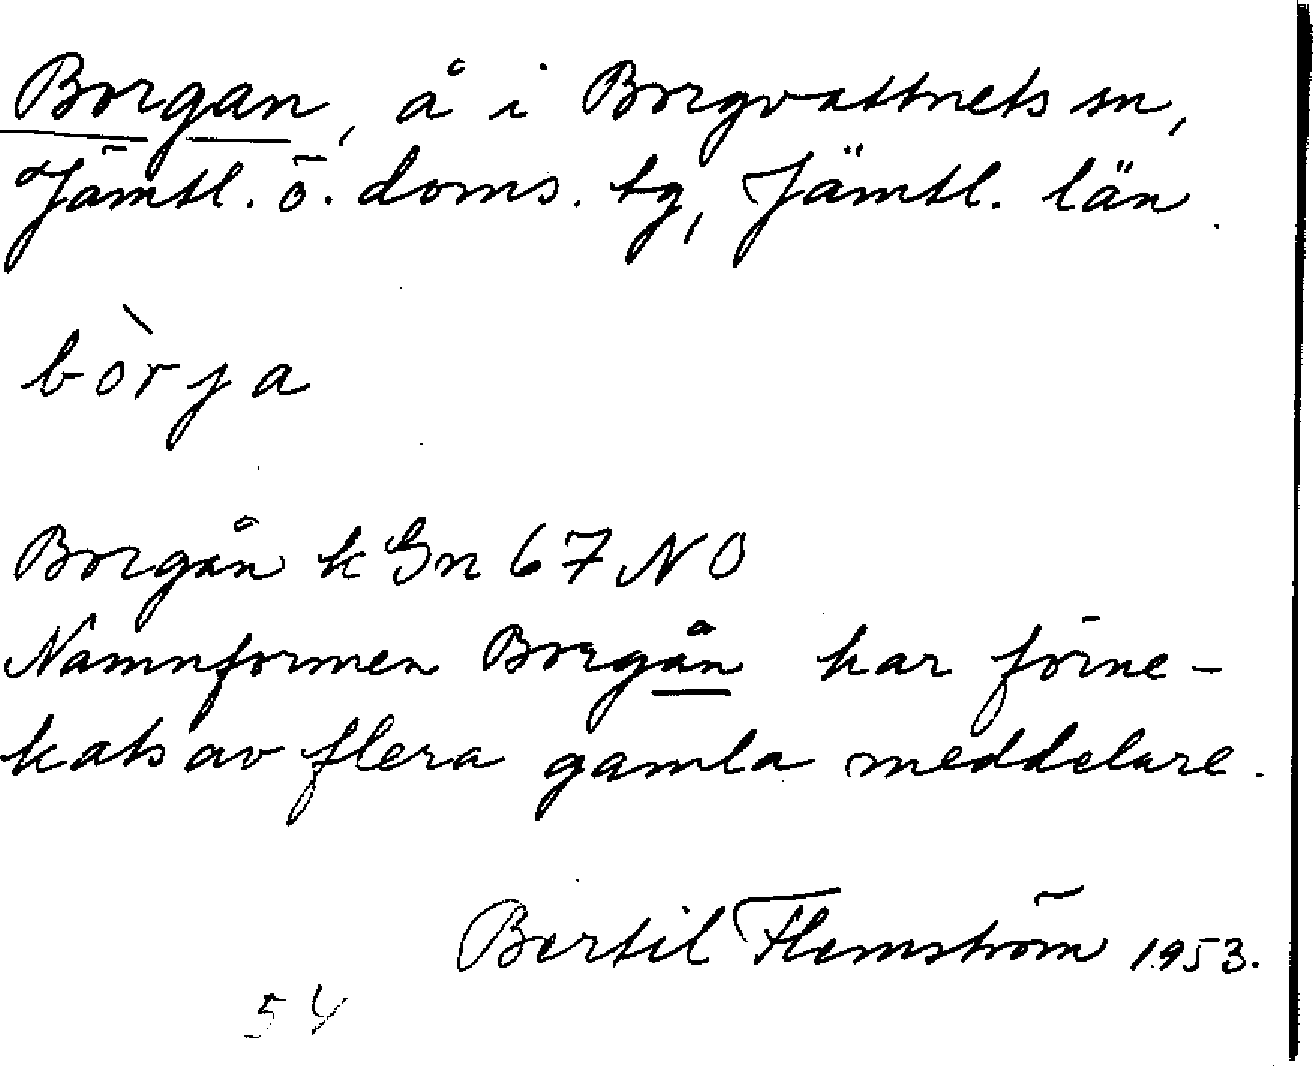 Borgan, å i Borgvattnets sn,
Jämtl. ö. doms. tg, Jämtl. län.
bòrja
Borgån kGn 67 NO
Namnformen Borgån har förne-
kats av flera gamla meddelare.
Bertil Flemström 1953.
54